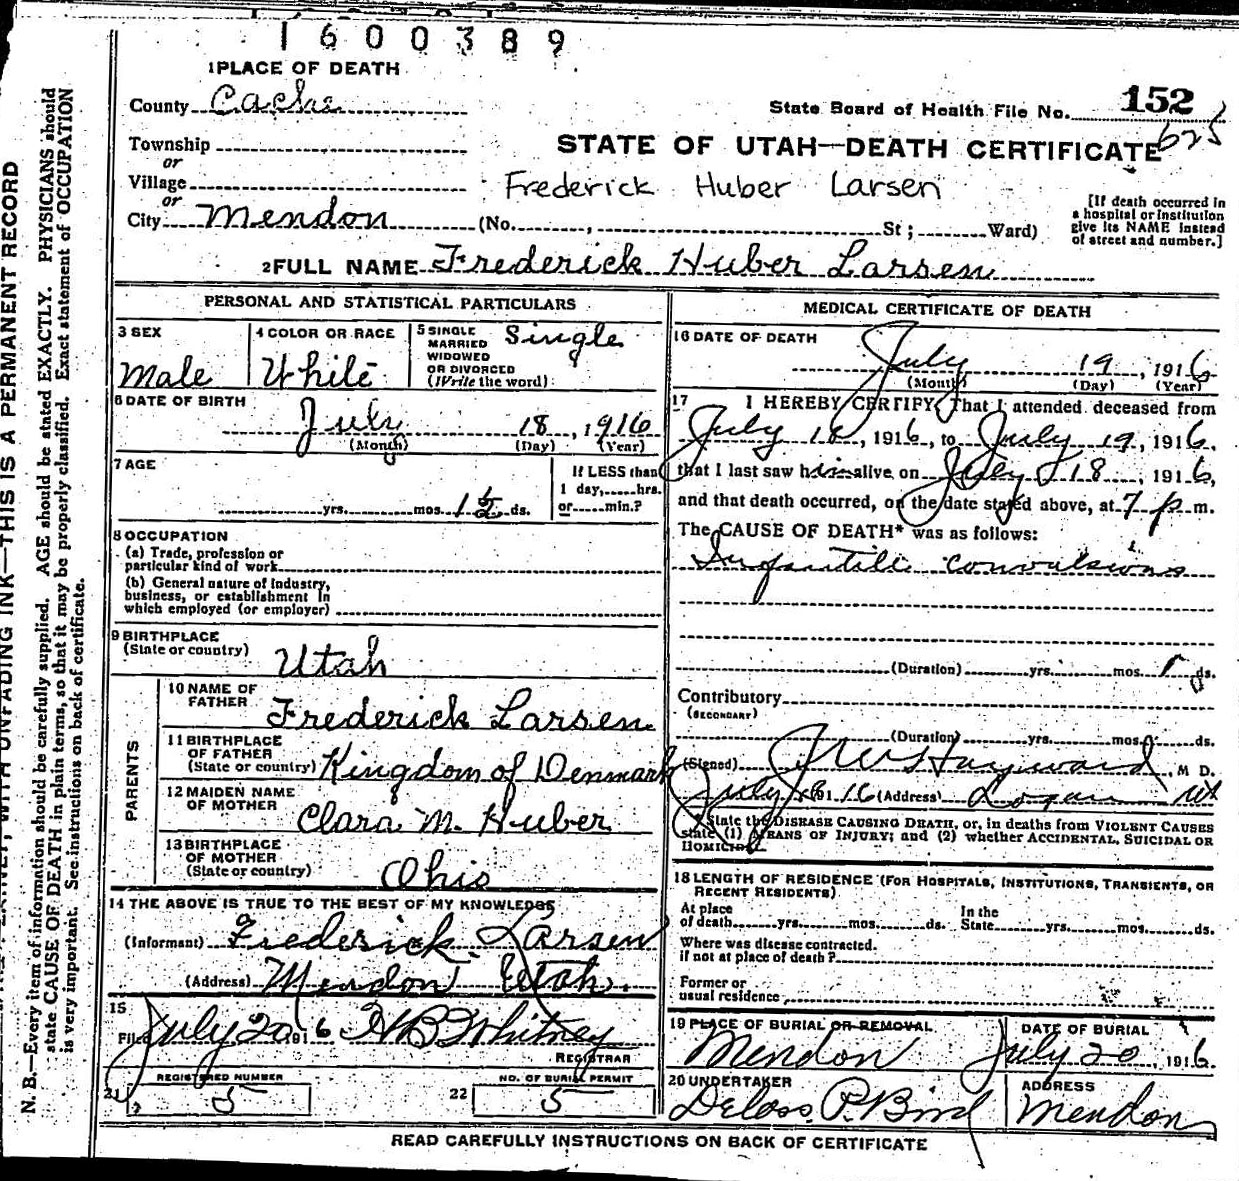 1600389
1 PLACE OF DEATH
County Cache
State Board of Health File No. 152
625
Township
or
STATE OF UTAH—DEATH CERTIFICATE
Village
Frederick Huber Larsen
or
City Mendon (No. , St ; Ward)
[If death occurred in
a hospital or institution
give its NAME instead
of street and number.]
2 FULL NAME Frederick Huber Larsen
PERSONAL AND STATISTICAL PARTICULARS
3 SEX
Male
4 COLOR OR RACE
White
5 SINGLE
MARRIED
WIDOWED
OR DIVORCED
(Write the word)
Single
6 DATE OF BIRTH
July 18, 1916
(Month) (Day) (Year)
7 AGE
yrs. mos. ds.
If LESS than
1 day, hrs.
or min.?
8 OCCUPATION
(a) Trade, profession or
particular kind of work
(b) General nature of industry,
business, or establishment in
which employed (or employer)
9 BIRTHPLACE
(State or country) Utah
PARENTS
10 NAME OF
FATHER Frederick Larsen
11 BIRTHPLACE
OF FATHER
(State or country) Kingdom of Denmark
12 MAIDEN NAME
OF MOTHER Clara M. Huber
13 BIRTHPLACE
OF MOTHER
(State or country) Ohio
14 THE ABOVE IS TRUE TO THE BEST OF MY KNOWLEDGE
(Informant) Frederick Larsen
(Address) Mendon Utah.
15
Filed July 20 1916 H B Whitney
REGISTRAR
21 REGISTERED NUMBER
5
22 NO. OF BURIAL PERMIT
5
MEDICAL CERTIFICATE OF DEATH
16 DATE OF DEATH
July 19, 1916
(Month) (Day) (Year)
17 I HEREBY CERTIFY, That I attended deceased from
July 18, 1916, to July 19, 1916,
that I last saw him alive on July 18, 1916,
and that death occurred, on the date stated above, at 7 p m.
The CAUSE OF DEATH* was as follows:
Infantile convulsions
(Duration) yrs. mos. 1 ds.
Contributory
(SECONDARY)
(Duration) yrs. mos. ds.
(Signed) Hayward, M D.
July 1916 (Address) Logan Ut
*State the DISEASE CAUSING DEATH, or, in deaths from VIOLENT CAUSES
state (1) MEANS OF INJURY; and (2) whether ACCIDENTAL, SUICIDAL OR
HOMICIDAL.
18 LENGTH OF RESIDENCE (FOR HOSPITALS, INSTITUTIONS, TRANSIENTS, OR
RECENT RESIDENTS)
At place
of death yrs. mos. ds.
In the
State yrs. mos. ds.
Where was disease contracted.
if not at place of death?
Former or
usual residence
19 PLACE OF BURIAL OR REMOVAL
Mendon
DATE OF BURIAL
July 20, 1916
20 UNDERTAKER
Deloss P. Bird
ADDRESS
Mendon
READ CAREFULLY INSTRUCTIONS ON BACK OF CERTIFICATE
UNFADING INK—THIS IS A PERMANENT RECORD
N. B.—Every item of information should be carefully supplied. AGE should be stated EXACTLY. PHYSICIANS should
state CAUSE OF DEATH in plain terms, so that it may be properly classified. Exact statement of OCCUPATION
is very important. See instructions on back of certificate.